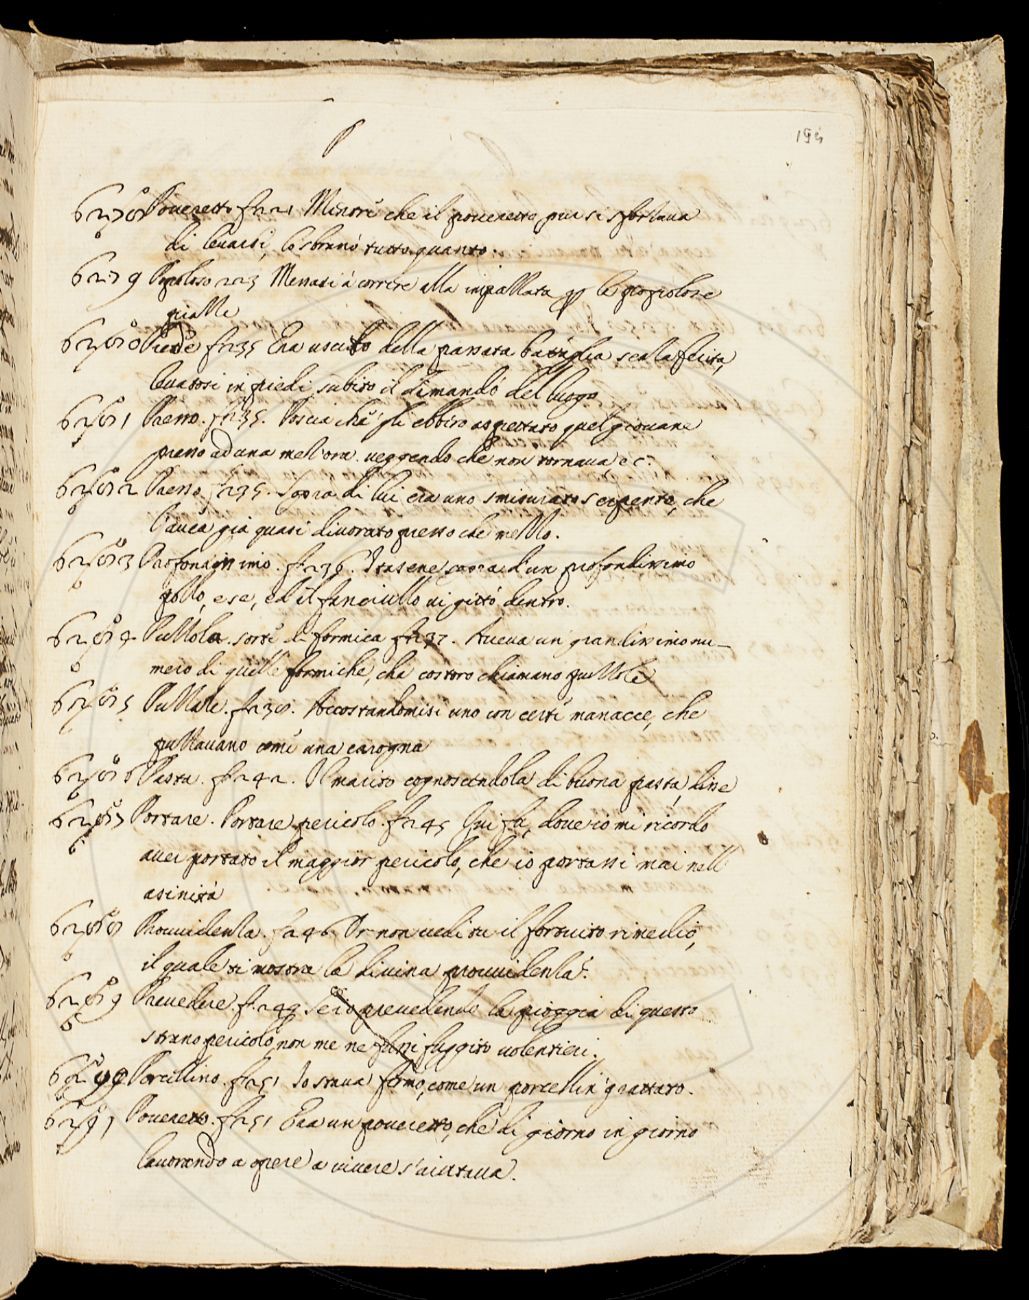 P
194
6278 Poueretto f. 221 Mentre che il poueretto pur si sfortaua
di leuarsi, lo sbranò tutto quanto.
6279 223 Menati à correre alla impaƶƶata le
6280 Piede f. 235 Era uscito della passata battaglia
leuatosi in piedi subito il dimandò del luogo
6281 Presso. f. 235. Poscia che gli ebbero aspettato quel giouane
presso ad una mezz'ora ueggendo che non tornaua ec.
6282 Presso. f. 235. Sopra di lui era uno smisurato serpente, che
l'auea già quasi diuorato presso che mezzo.
6283 Profondissimo. f. 236. sopra d'un profondissimo
pozzo, ed il fanciullo ui gittò dentro.
6284 Puzzola. sorte di formica f. 237. Aueua un grandissimo nu-
mero di quelle formiche, che costoro chiamano puzzole
6285 Puzzare. f. 238. Accostandomisi uno con certe manacce, che
puzzauano come una carogna
6286 Pasta. f. 242. Il marito cognoscendola di buona pasta, disse
6287 Portare. Portare pericolo. f. 245 Qui fu, doue io mi ricordo
auer portato il maggior pericolo, che io portassi mai nell'
asinità
6288 Prouuidenza. f. 246 Or non uedi tu il fortuito rimedio,
il quale ti mostra la diuina prouuidenza?
6289 Preuedere. f. 249 Se io preuedendo la pioggia di questo
strano pericolo non me ne fussi fuggito uolentieri.
6290 Porcellino. f. 251 Io staua fermo, come un porcellin grattato.
6291 Poueretto. f. 251 Era un poueretto, che di giorno in giorno
lauorando a opere a uiuere s'aiutaua.